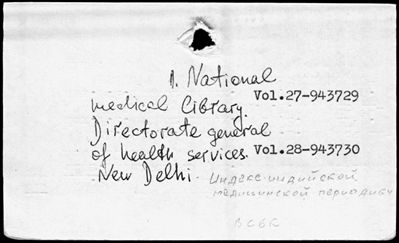 1. National
medical library. Vol.27-943729
Directorate general
of health services. Vol.28-943730
New Delhi. Индекс индийской
медицинской периодики
ВСБК